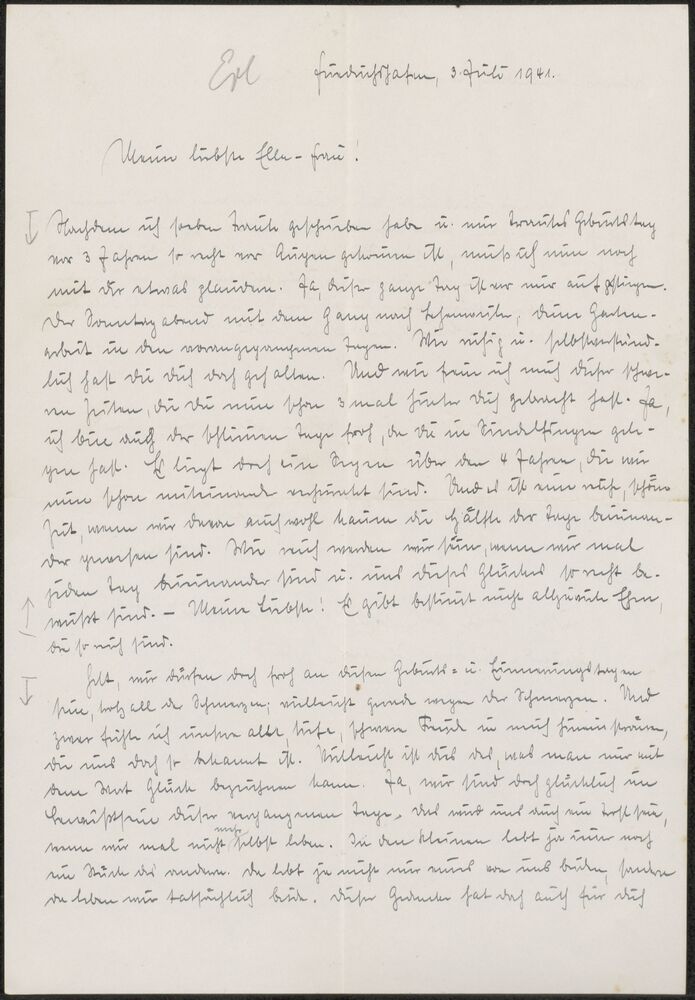 Erl
Friedrichshafen, 3. Juli 1941.
Meine liebste Ella-Frau!
Nachdem ich soeben Traute geschrieben habe u. mir Trautes Geburtstag
vor 3 Jahren so recht vor Augen gekommen ist, muß ich nun noch
mit Dir etwas plaudern. Ja, dieser ganze Tag ist vor mir aufgestiegen.
Der Sonntagabend mit dem Gang nach, Deine Garten-
arbeit in den vorangegangenen Tagen. Wie ruhig u. selbstverständ-
lich hast Du Dich doch gehalten. Und wie freue ich mich dieser schwe-
ren Zeiten, die Du nun schon 3 mal hinter Dich gebracht hast. Ja,
ich bin auch der schlimmen Tage froh, da Du in Sindelfingen gele-
gen hast. Es liegt doch ein Segen über den 4 Jahren, die wir
nun schon miteinander verheiratet sind. Und es ist eine reiche, schöne
Zeit, wenn wir davon auch wohl kaum die Hälfte der Tage beieinan-
der gewesen sind. Wie reich werden wir sein, wenn wir mal
jeden Tag beieinander sind u. uns dieses Glückes so recht be-
wußt sind. – Meine Liebste! Es gibt bestimmt nicht allzuviele Ehen,
die so reich sind.
Gelt, wir dürfen doch froh an diesen Geburts- u. Erinnerungstagen
sein, trotz all der Schmerzen; vielleicht gerade wegen der Schmerzen. Und
zwar fühle ich unsre alte, tiefe, schwere Freude in mich hineinströmen,
die uns doch so bekannt ist. Vielleicht ist dies das, was man nur mit
dem Wort Glück bezeichnen kann. Ja, wir sind doch glücklich im
Bewußtsein dieser vergangenen Tage. Das wird uns auch ein Trost sein,
wenn wir mal nicht mehr selbst leben. In den Kleinen lebt ja immer noch
ein Stück des andern. Da lebt ja nicht nur eines von uns beiden, sondern
da leben wir tatsächlich beide. Dieser Gedanke hat doch auch für Dich